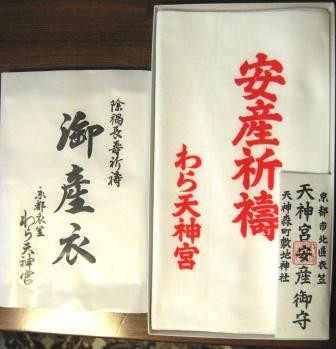 除禍長寿祈祷
御産衣
京都衣笠
わら天神宮
安産祈祷
わら天神宮
京都市北区衣笠
天神宮安産御守
天神森町敷地神社